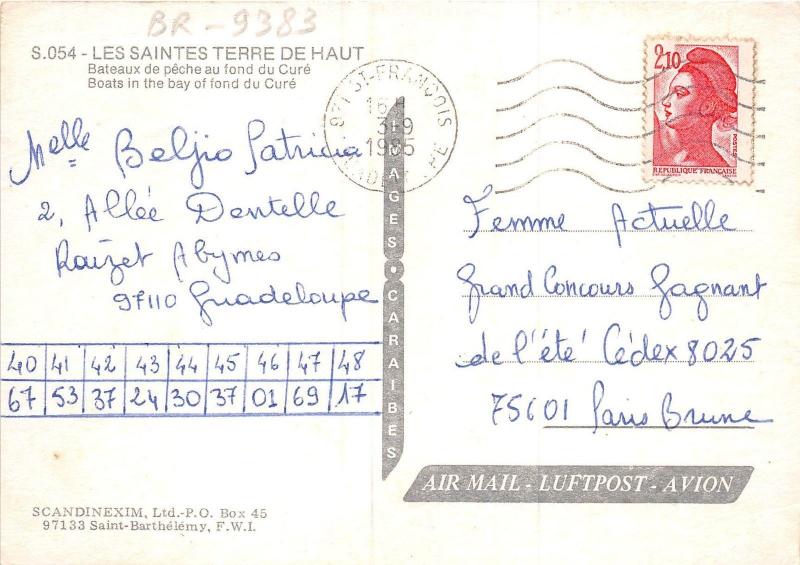 BR-9383
S.054 - LES SAINTES TERRE DE HAUT
Bateaux de pêche au fond du Curé
Boats in the bay of fond du Curé
Melle Beljio Patricia
2, Allée Dentelle
Raizet Abymes
97110 Guadeloupe
40 41 42 43 44 45 46 47 48
67 53 37 24 30 37 01 69 17
SCANDINEXIM, Ltd.-P.O. Box 45
97133 Saint-Barthélémy, F.W.I.
971 ST-FRANÇOIS
16 H
3-9
1985
IMAGES • CARAIBES
2,10
POSTES
REPUBLIQUE FRANÇAISE
Femme Actuelle
Grand Concours Gagnant
de l'été Cédex 8025
75601 Paris Brune
AIR MAIL - LUFTPOST - AVION